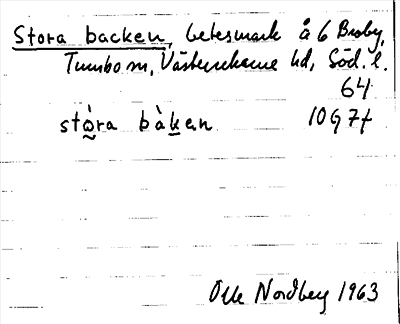 Stora backen, betesmark å 6 Broby,
Tumbo sn, Västerrekarne hd, Söd. l.
64
stò̰ra bàḵen 10G 7f
Olle Nordberg 1963